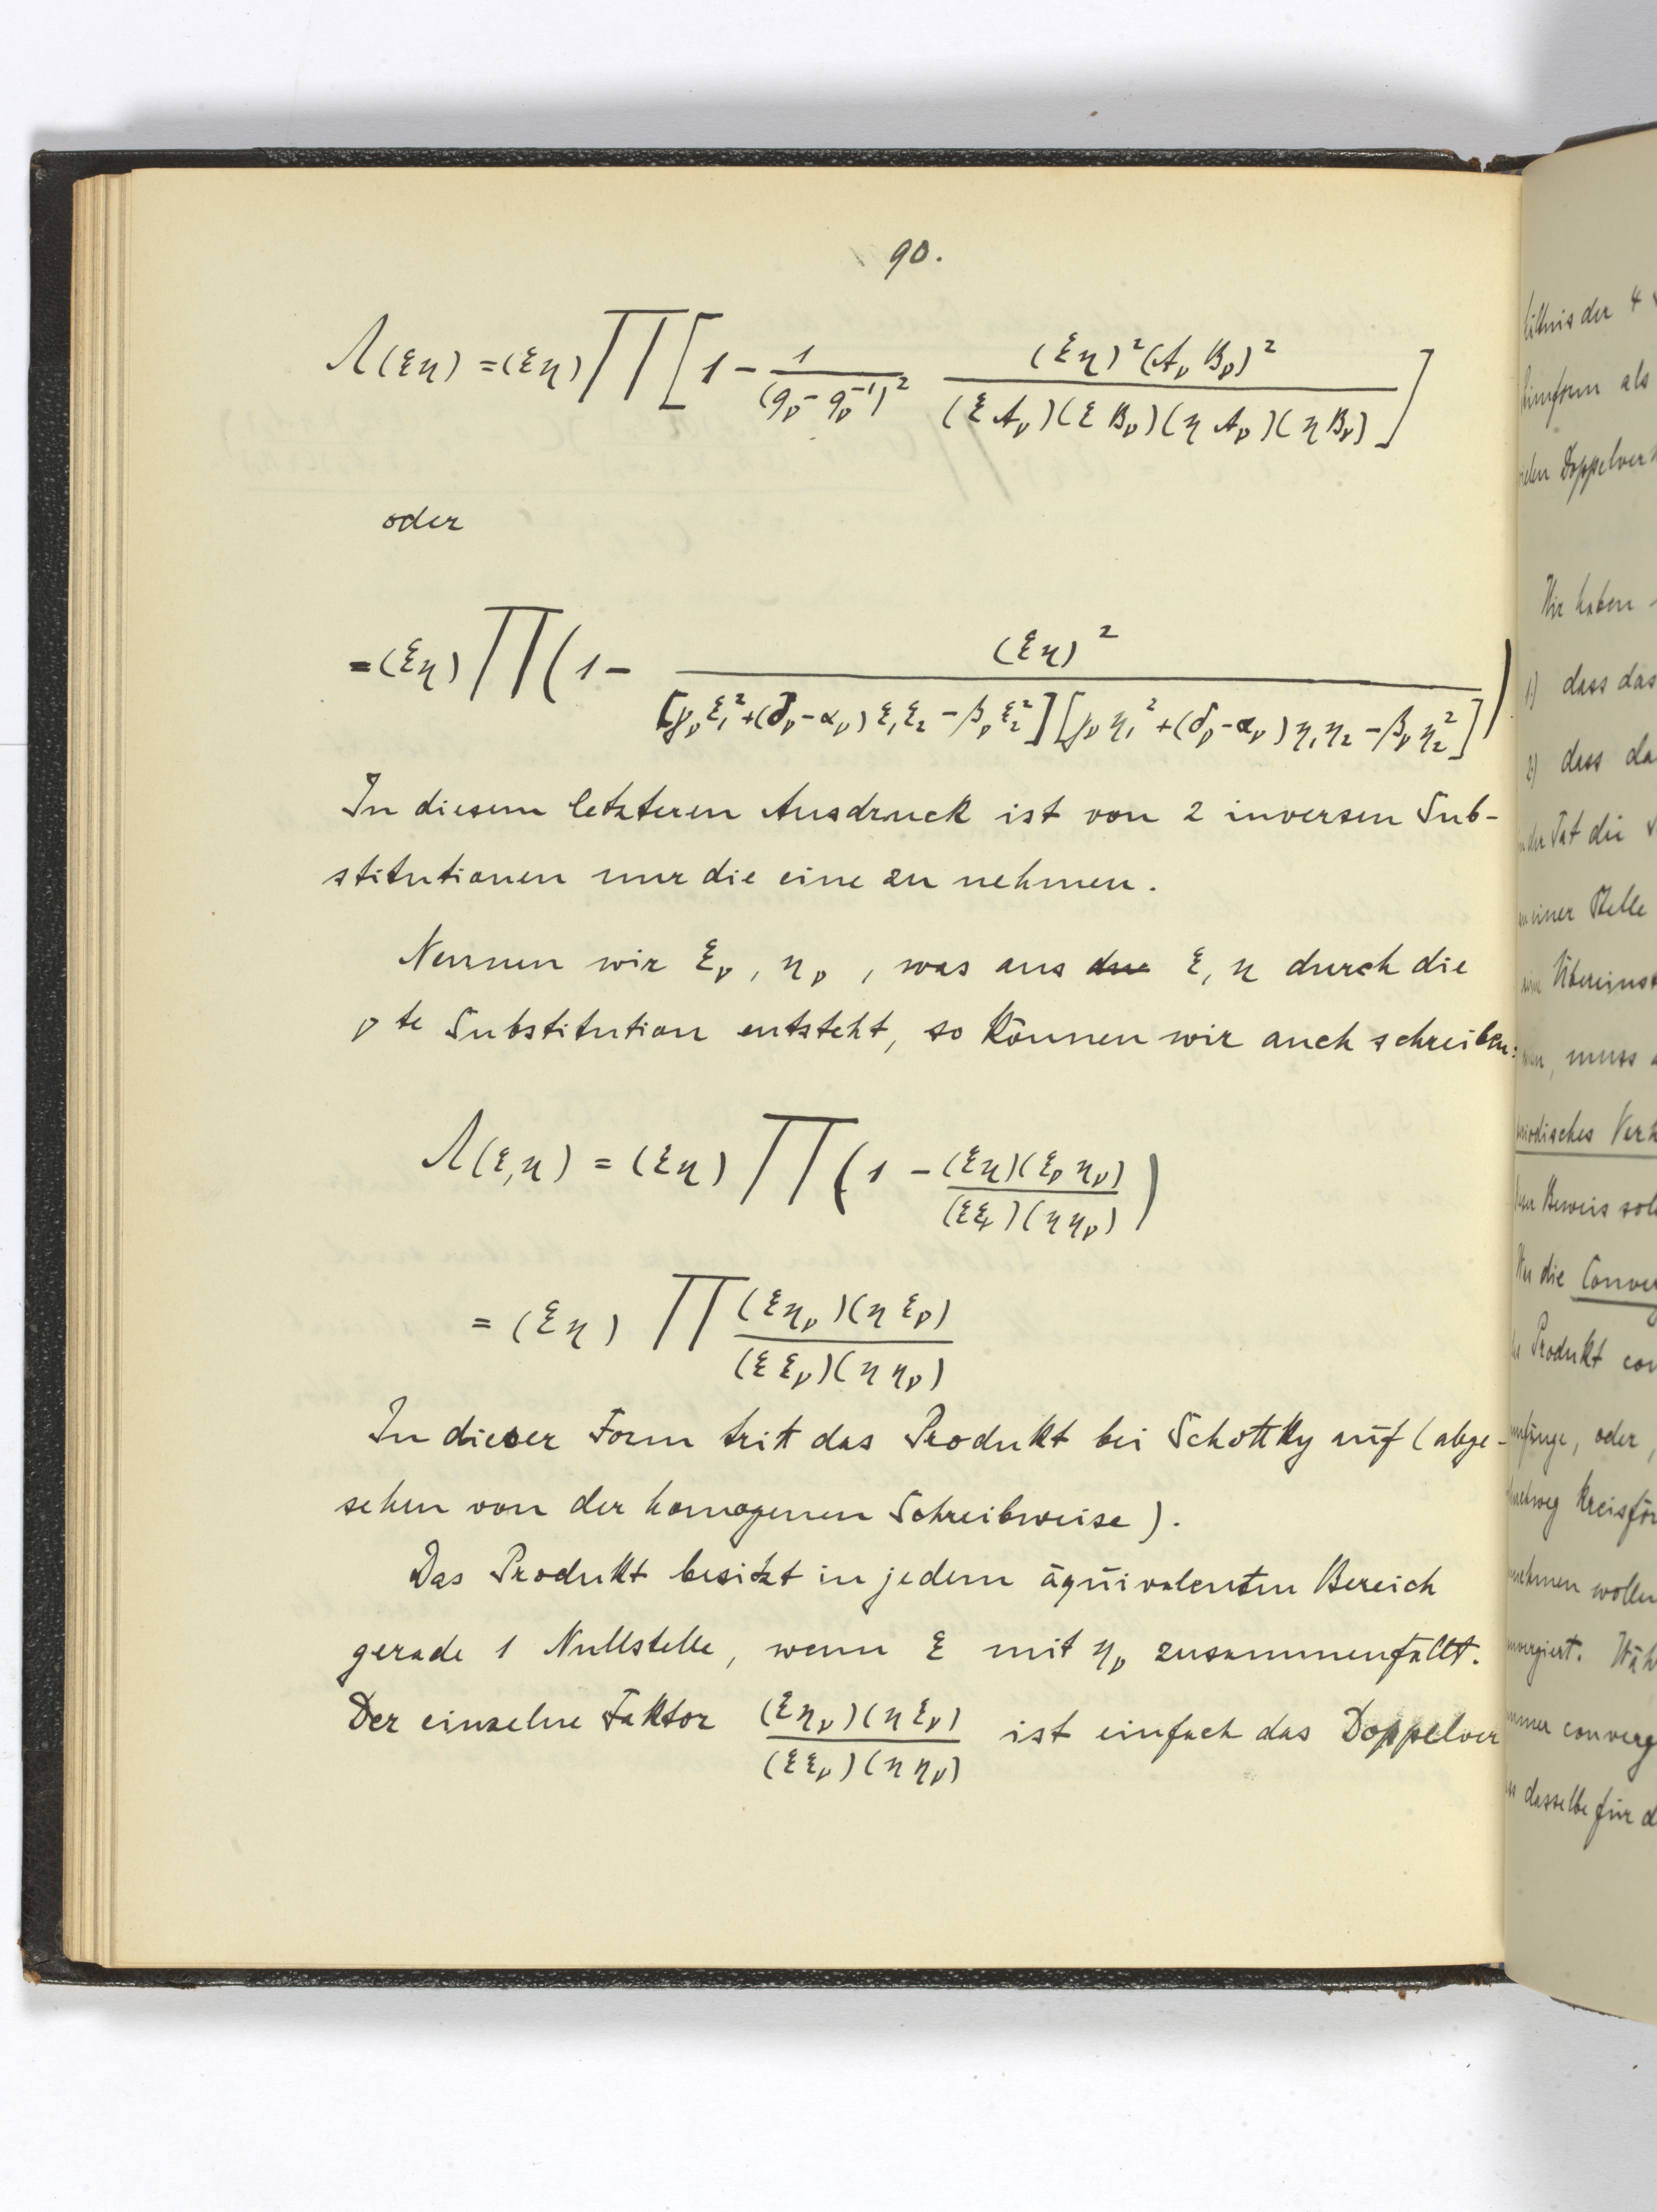 90.
Λ(ξη) = (ξη) ∏ [1 - 1/(q_ν - q_ν^{-1})² (ξη)²(A_ν B_ν)²/((ξA_ν)(ξB_ν)(ηA_ν)(ηB_ν))]
oder
= (ξη) ∏ (1 - (ξη)²/([γ_ν ξ₁² + (δ_ν - α_ν) ξ₁ξ₂ - β_ν ξ₂²][γ_ν η₁² + (δ_ν - α_ν) η₁η₂ - β_ν η₂²]))
In diesem letzteren Ausdruck ist von 2 inversen Sub-
stitutionen nur die eine zu nehmen.
Nennen wir ξ_ν, η_ν, was aus ξ, η durch die
ν te Substitution entsteht, so können wir auch schreiben:
Λ(ξ,η) = (ξη) ∏ (1 - (ξη)(ξ_ν η_ν)/((ξξ_ν)(ηη_ν)))
= (ξη) ∏ (ξη_ν)(ηξ_ν)/((ξξ_ν)(ηη_ν))
In dieser Form tritt das Produkt bei Schottky auf (abge-
sehen von der homogenen Schreibweise).
Das Produkt besitzt in jedem äquivalenten Bereich
gerade 1 Nullstelle, wenn ξ mit η_ν zusammenfällt.
Der einzelne Faktor (ξη_ν)(ηξ_ν)/((ξξ_ν)(ηη_ν)) ist einfach das Doppelver
der 4
als
Wir haben
1) dass das
2) dass da
der Tat die
einer Stelle
muss
Beweis
die
Produkt
oder,
wollen
dasselbe für d